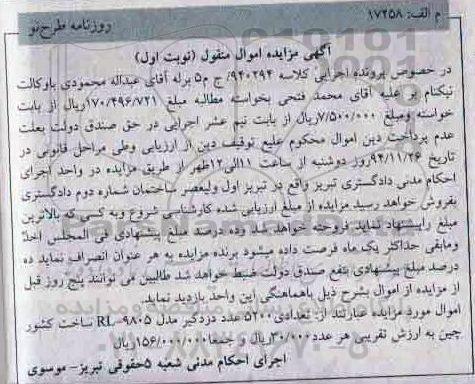 م الف: ۱۷۲۵۸
روزنامه طرح‌نو
آگهی مزایده اموال منقول (نوبت اول)
در خصوص پرونده اجرایی کلاسه ۹۴۰۲۹۴/ ج م۵ برله آقای عبداله محمودی باوکالت
نیکنام و علیه آقای محمد فتحی بخواسته مطالبه مبلغ ۱۷۰/۴۹۶/۷۲۱ریال از بابت
خواسته ومبلغ ۷/۵۰۰/۰۰۰ریال از بابت نیم عشر اجرایی در حق صندق دولت بعلت
عدم پرداخت دین اموال محکوم علیع توقیف دین از ارزیابی وطی مراحل قانونی در
تاریخ ۹۴/۱۱/۲۶روز دوشنبه از ساعت ۱۱الی۱۲ظهر از طریق مزایده در واحد اجرای
احکام مدنی دادگستری تبریز واقع در تبریز اول ولیعصر ساختمان شماره دوم دادگستری
بفروش خواهد رسید مزایده از مبلغ ارزیابی شده کارشناسی شروع وبه کسی که بالاترین
مبلغ راپیشنهاد نماید فروخته خواهد شد وده درصد مبلغ پیشنهادی فی المجلس اخذ
ومابقی حداکثر یک‌ماه فرصت داده میشود برنده مزایده به هر عنوان انصراف نماید ده
درصد مبلغ پیشنهادی بنفع صندق دولت ضبط خواهد شد طالبین می توانند پنج روز قبل
از مزایده از اموال بشرح ذیل باهماهنگی این واحد بازدید نماید.
اموال مورد مزایده عبارتند از: تعدادی۵۲۰۰ عدد دزدگیر مدل RL-۹۸۰۵ ساخت کشور
چین به ارزش تقریبی هر عدد۳۰/۰۰۰ریال و جمعا۱۵۶/۰۰۰/۰۰۰ریال
اجرای احکام مدنی شعبه ۵حقوقی تبریز- موسوی